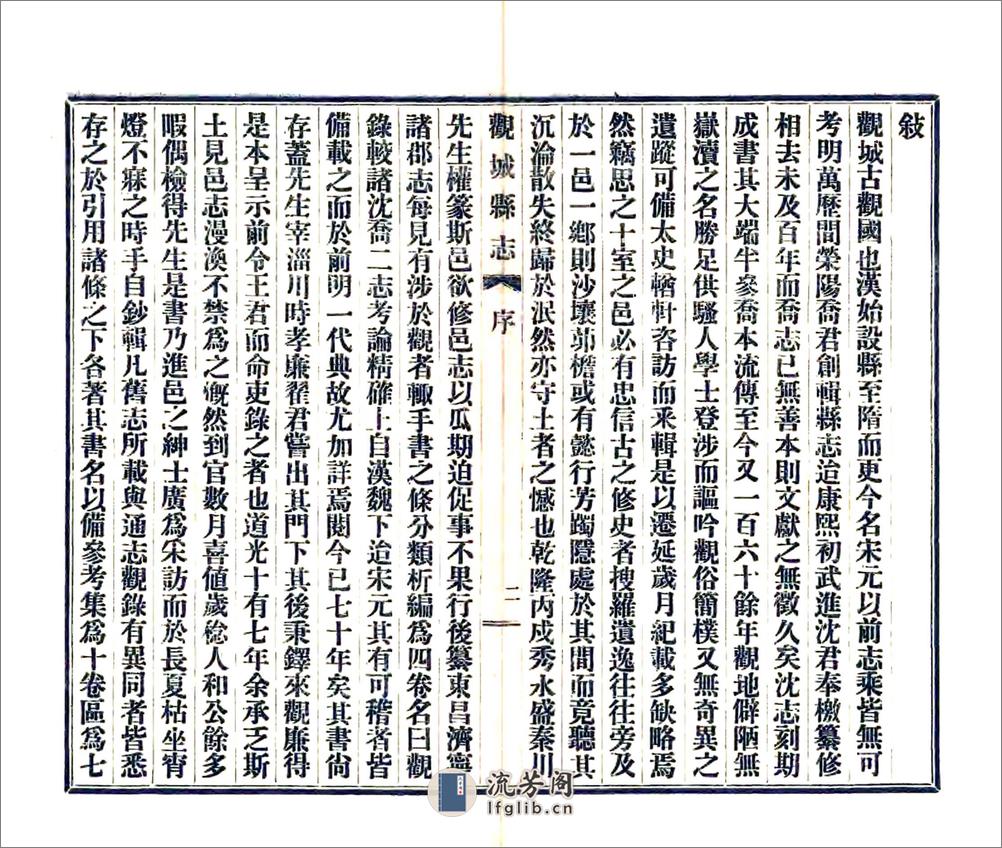 敍
觀城古觀國也漢始設縣至隋而更今名宋元以前志乘皆無可
考明萬歷間榮陽喬君創輯縣志迨康熙初武進沈君奉檄纂修
相去未及百年而喬志已無善本則文獻之無徵久矣沈志刻期
成書其大端半參喬本流傳至今又一百六十餘年觀地僻陋無
嶽瀆之名勝足供騷人學士登涉而謳吟觀俗簡樸又無奇異之
遺蹤可備太史輶軒咨訪而釆輯是以遷延歲月紀載多缺略焉
然竊思之十室之邑必有忠信古之修史者搜羅遺逸往往旁及
於一邑一鄉則沙壤茆檐或有懿行芳躅隱處於其間而竟聽其
沉淪散失終歸於泯然亦守土者之憾也乾隆丙戍秀水盛秦川
觀城縣志 序 二
先生權篆斯邑欲修邑志以瓜期迫促事不果行後纂東昌濟寧
諸郡志每見有涉於觀者輙手書之條分類析編爲四卷名曰觀
錄較諸沈喬二志考論精確上自漢魏下迨宋元其有可稽者皆
備載之而於前明一代典故尤加詳焉閱今已七十年矣其書尙
存蓋先生宰淄川時孝廉翟君嘗出其門下其後秉鐸來觀廉得
是本呈示前令王君而命吏錄之者也道光十有七年余承乏斯
土見邑志漫漶不禁爲之慨然到官數月喜値歲稔人和公餘多
暇偶檢得先生是書乃進邑之紳士廣爲采訪而於長夏枯坐宵
燈不寐之時手自鈔輯凡舊志所載與通志觀錄有異同者皆悉
存之於引用諸條之下各著其書名以備參考集爲十卷區爲七
流芳阁
lfglib.cn